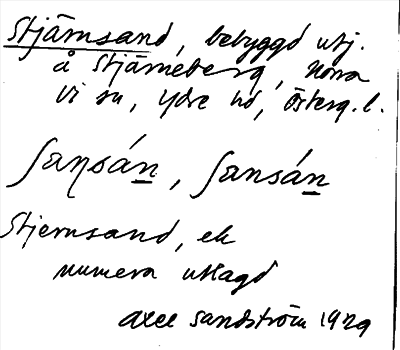 Stjärnsand, bebyggd utj.
å Stjärneberg, Norra
Vi sn, Ydre hd, Österg. l.
ʃaɳsán, ʃansán
Stjernsand, ek
numera utlagd
Axel Sandström 1929